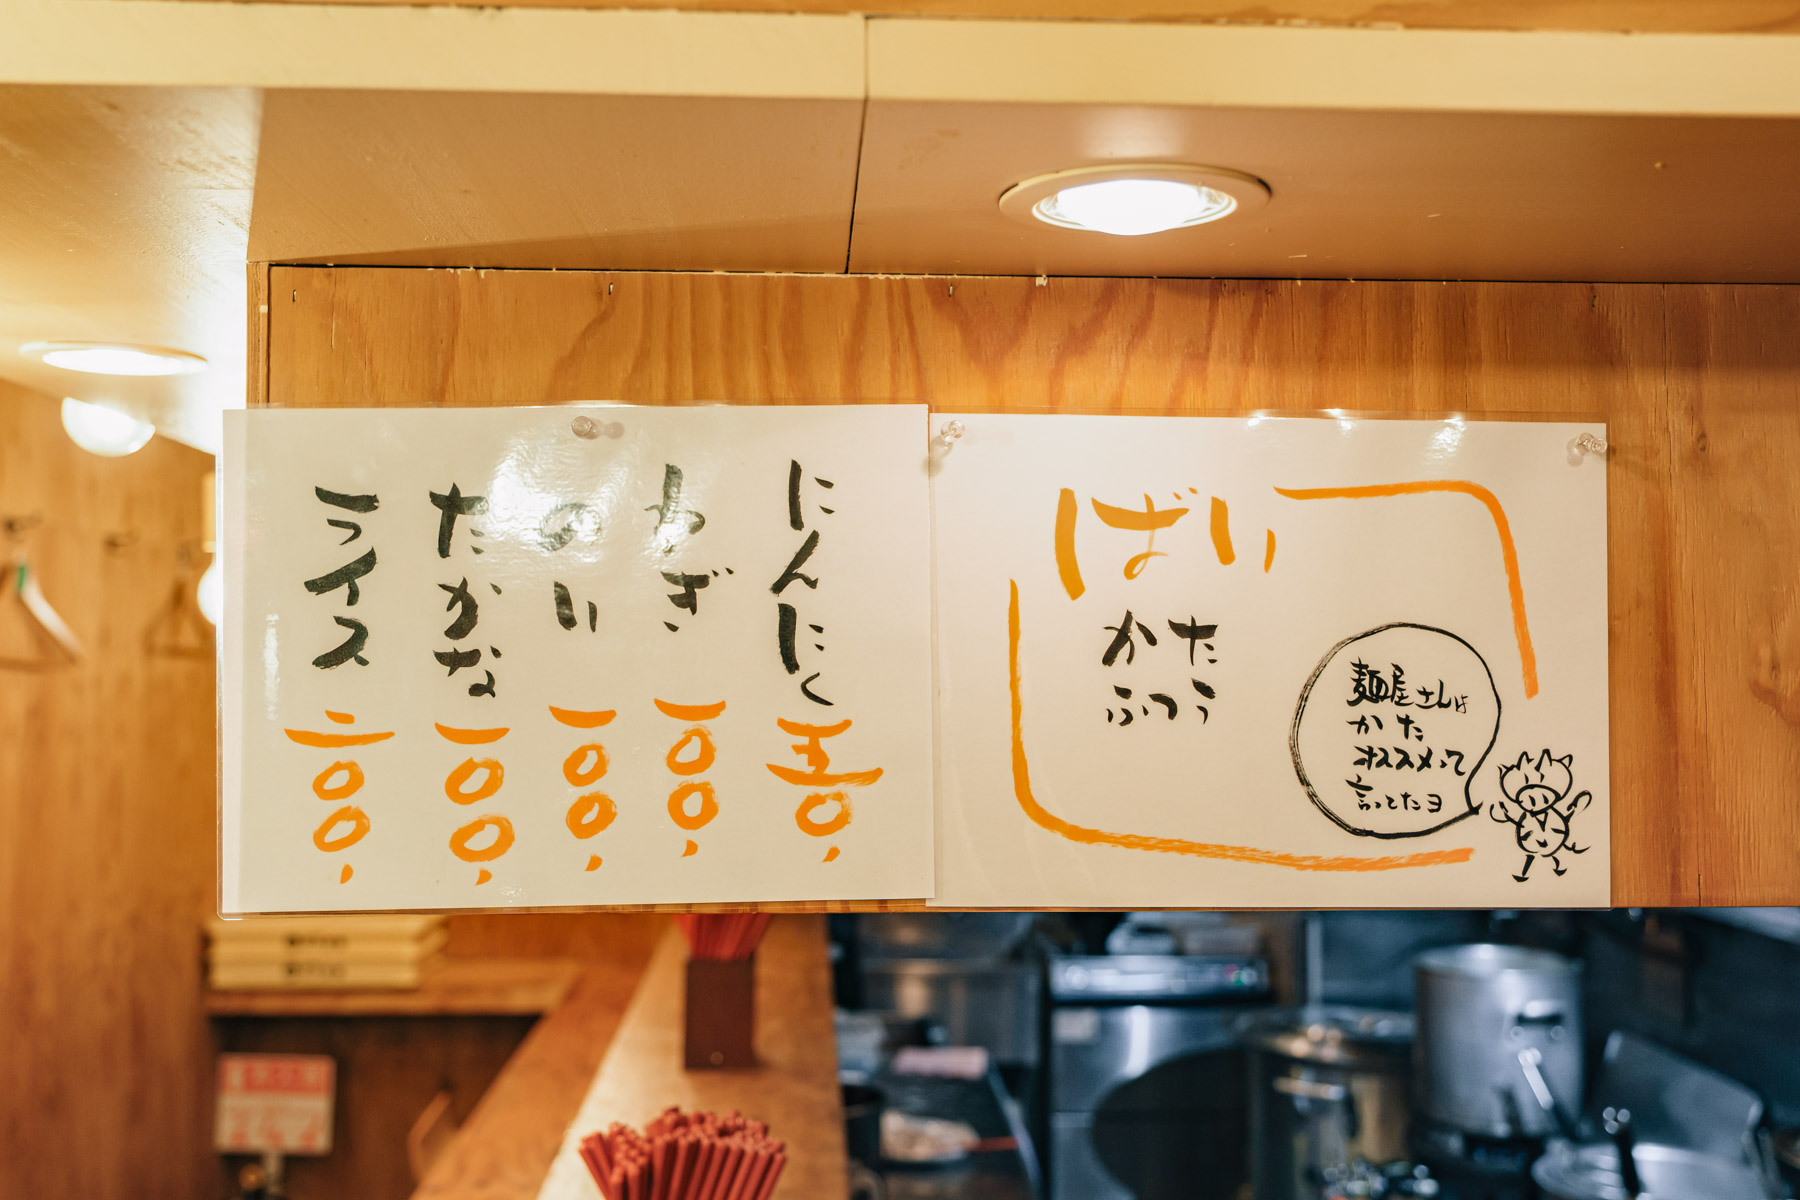 にんにく五〇、
ねぎ一〇〇、
のり一〇〇、
たかな一〇〇、
ライス二〇〇、
ばり
かた
ふつう
麺屋さんは
かた
オススメって
言ってたヨ